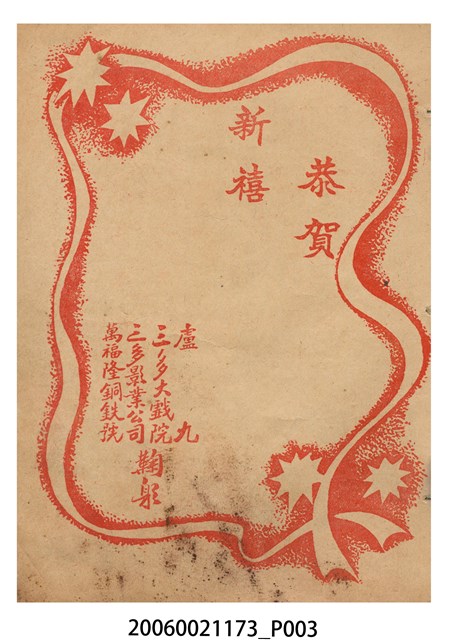 恭賀
新禧
盧九
三多大戲院
三多影業公司
萬福隆銅鉄號
鞠躬
20060021173_P003